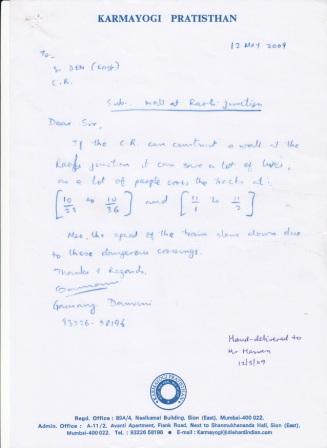 KARMAYOGI PRATISTHAN
12 MAY 2009
To,
S. DEN (East)
C.R.
Sub. Wall at Raoli junction
Dear Sir,
If the C.R. can construct a wall at the
Raoli junction it can save a lot of lives,
as a lot of people cross the tracks at:
[10/33 to 10/36] and [11/1 to 11/2]
Also, the speed of the train slows down due
to these dangerous crossings.
Thanks & Regards,
Gaurang Damani
93226-58196
Hand-delivered to
Mr
12/5/09
KARMAYOGI PRATISTHAN
Regd. Office : 89A/4, Nasikamal Building, Sion (East), Mumbai-400 022.
Admin. Office : A-11/2, Avanti Apartment, Flank Road, Next to Shanmukhananda Hall, Sion (East),
Mumbai-400 022. Tel. : 93226 58196 • E-mail : Karmayogi@diehardindian.com